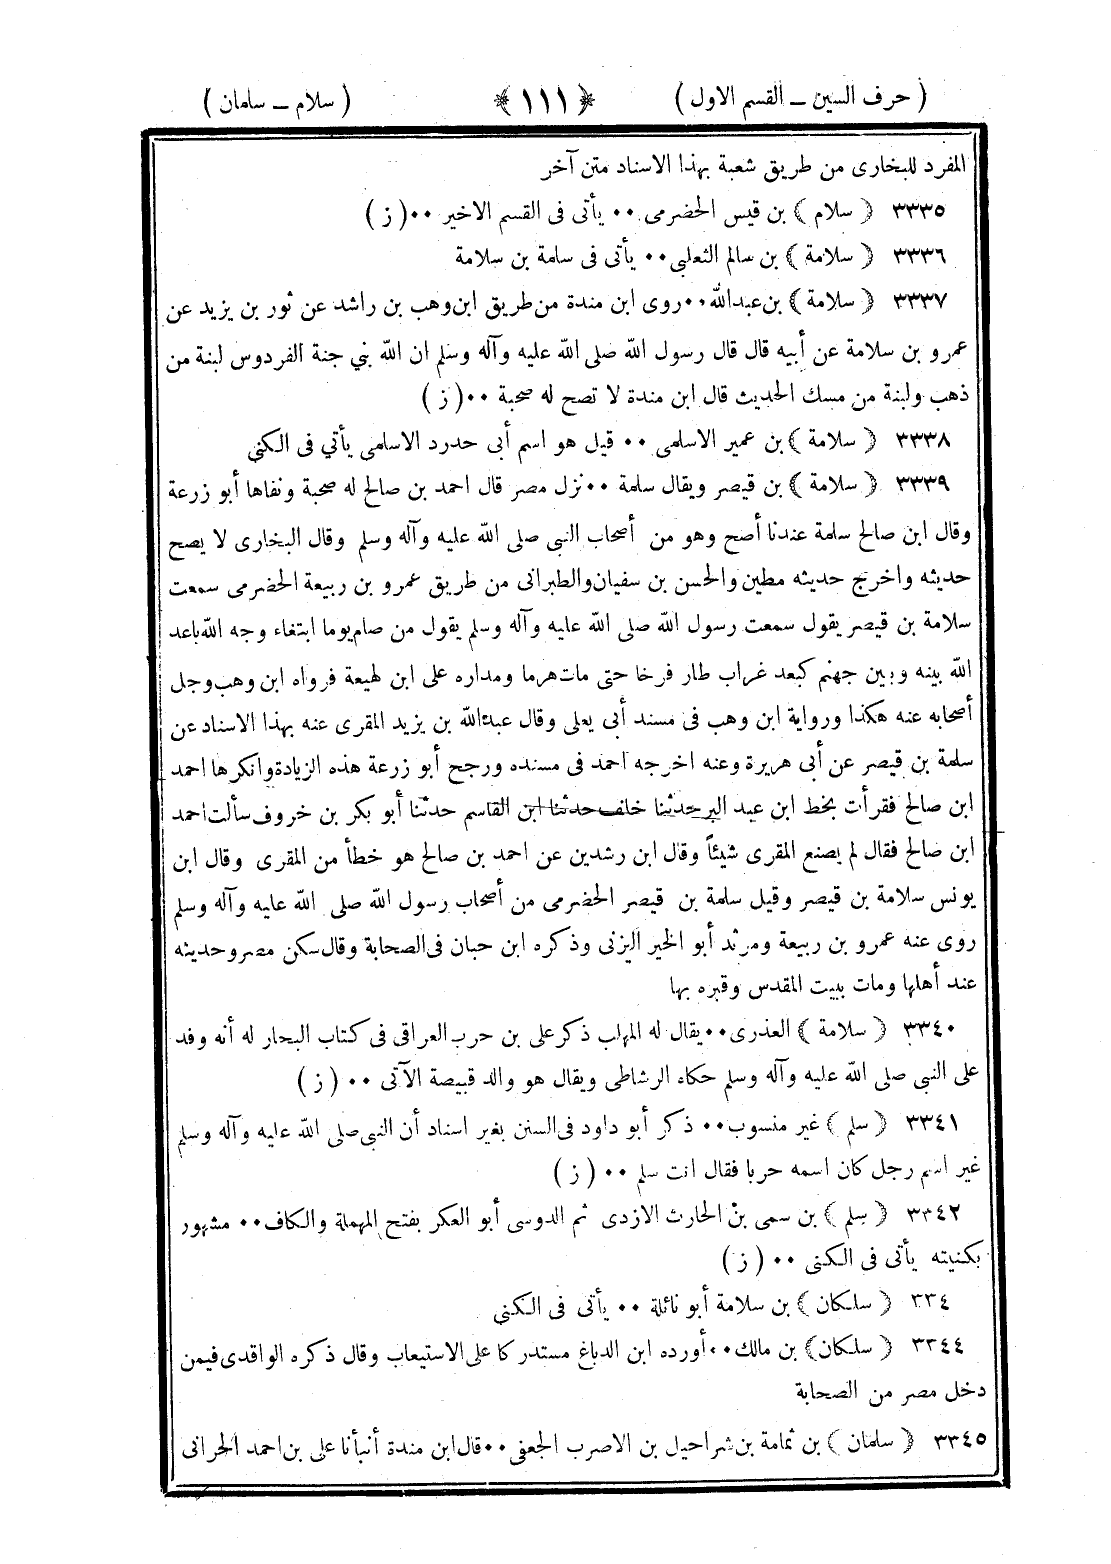 ( حرف السين – القسم الاول ) ﴿ ١١١ ﴾ ( سلام – سلمان )
المفرد للبخارى من طريق شعبة بهذا الاسناد متن آخر
٣٣٣٥ ( سلام ) بن قيس الحضرمى ٠٠ يأتى فى القسم الاخير ٠٠ ( ز )
٣٣٣٦ ( سلامة ) بن سالم الثعلبى ٠٠ يأتى فى سلمة بن سلامة
٣٣٣٧ ( سلامة ) بن عبدالله ٠٠ روى ابن مندة من طريق ابن وهب بن راشد عن ثور بن يزيد عن
عمرو بن سلامة عن أبيه قال قال رسول الله صلى الله عليه وآله وسلم ان الله بني جنة الفردوس لبنة من
ذهب ولبنة من مسك الحديث قال ابن مندة لا تصح له صحبة ٠٠ ( ز )
٣٣٣٨ ( سلامة ) بن عمير الاسلمى ٠٠ قيل هو اسم أبى حدرد الاسلمى يأتي فى الكنى
٣٣٣٩ ( سلامة ) بن قيصر ويقال سلمة ٠٠ نزل مصر قال احمد بن صالح له صحبة ونفاها أبو زرعة
وقال ابن صالح سلمة عندنا أصح وهو من أصحاب النبى صلى الله عليه وآله وسلم وقال البخارى لا يصح
حديثه واخرج حديثه مطين والحسن بن سفيان والطبرانى من طريق عمرو بن ربيعة الحضرمى سمعت
سلامة بن قيصر يقول سمعت رسول الله صلى الله عليه وآله وسلم يقول من صام يوما ابتغاء وجه الله باعد
الله بينه وبين جهنم كبعد غراب طار فرخا حتى مات هرما ومداره على ابن لهيعة فرواه ابن وهب وجل
أصحابه عنه هكذا ورواية ابن وهب فى مسند أبى يعلى وقال عبدالله بن يزيد المقرى عنه بهذا الاسناد عن
سلمة بن قيصر عن أبى هريرة وعنه اخرجه احمد فى مسنده ورجح أبو زرعة هذه الزيادة وانكرها احمد
ابن صالح فقرأت بخط ابن عبد البر حدثنا خلف حدثنا ابن القاسم حدثنا أبو بكر بن خروف سألت احمد
ابن صالح فقال لم يصنع المقرى شيئاً وقال ابن رشدين عن احمد بن صالح هو خطأ من المقرى وقال ابن
يونس سلامة بن قيصر وقيل سلمة بن قيصر الحضرمى من أصحاب رسول الله صلى الله عليه وآله وسلم
روى عنه عمرو بن ربيعة ومرثد أبو الخير اليزنى وذكره ابن حبان فى الصحابة وقال سكن مصر وحديثه
عند أهلها ومات ببيت المقدس وقبره بها
٣٣٤٠ ( سلامة ) العذرى ٠٠ يقال له المهلب ذكر على بن حرب العراقى فى كتاب البحار له أنه وفد
على النبى صلى الله عليه وآله وسلم حكاه الرشاطى ويقال هو والد قبيصة الآتى ٠٠ ( ز )
٣٣٤١ ( سلم ) غير منسوب ٠٠ ذكر أبو داود فى السنن بغير اسناد أن النبى صلى الله عليه وآله وسلم
غير اسم رجل كان اسمه حربا فقال انت سلم ٠٠ ( ز )
٣٣٤٢ ( سلم ) بن سمى بن الحارث الازدى ثم الدوسى أبو العكر بفتح المهملة والكاف ٠٠ مشهور
بكنيته يأتى فى الكنى ٠٠ ( ز )
٣٣٤ ( سلكان ) بن سلامة أبو نائلة ٠٠ يأتى فى الكنى
٣٣٤٤ ( سلكان ) بن مالك ٠٠ أورده ابن الدباغ مستدركا على الاستيعاب وقال ذكره الواقدى فيمن
دخل مصر من الصحابة
٣٣٤٥ ( سلمان ) بن ثمامة بن شراحيل بن الاصرب الجعفى ٠٠ قال ابن مندة أنبأنا على بن احمد الحرانى